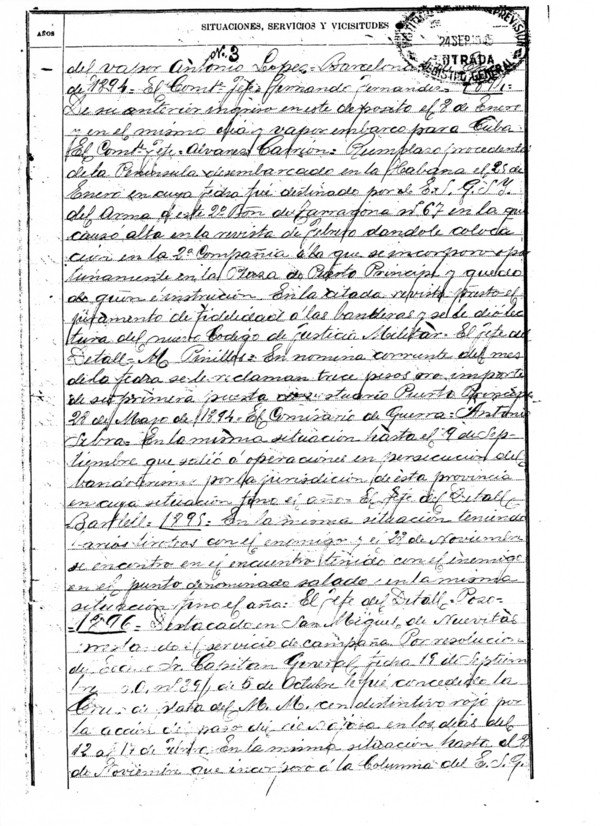 SITUACIONES, SERVICIOS Y VICISITUDES
AÑOS
PREVISION
24 SEP
ENTRADA
REGISTRO GENERAL
Nº 3
del vapor Antonio Lopez = Barcelona
de 1894 = El Comte Jefe = Fernando Fernandez =
De su anterior ingreso en este deposito el 8 de Enero
y en el mismo dia y vapor embarco para Cuba
El Comte Jefe = Alvarez Carrion = Remplazo procedente
de la Peninsula desembarcado en la Habana el 25 de
Enero en cuya fecha fué destinado por el E. S. G. S. Y.
del Arma á este 2º Bon de Tarragona nº 67 en la que
causó alta en la revista de Febrero dandole coloca
cion en la 2ª Compañia á la que se incorporo opor
tunamente en la Plaza de Puerto Principe y quedo
de guon é instrucion. En la citada revista presto el
juramento de fidelidad á las banderas y se le dió lec
tura del nuevo Codigo de Justicia Militar. El Jefe del
Detall = M. Pinillos = En nomina corriente del mes
de la fecha se le reclaman trece pesos oro importe
de su primera puesta de vestuario Puerto Principe
28 de Mayo de 1894 = El Comisario de Guerra = Antonio
= En la misma situacion hasta el 9 de Sep-
tiembre que salió á operaciones en persecucion del
bandolerismo por la jurisdicion de esta provincia
en cuya situacion fino el año = El Jefe del Detall
= 1895 = En la misma situacion teniendo
varios tiroteos con el enemigo y el 28 de Noviembre
se encontro en el encuentro tenido con el enemigo
en el punto denominado salado y en la misma
situacion fino el año = El Jefe del Detall Pozo =
= 1896 = Destacado en San Miguel de Nuevitas
prestando el servicio de campaña. Por resolucion
del Excmo Sr. Capitan General fecha 19 de Septiem
bre D. O. nº 239 de 5 de Octubre le fué concedida la
Cruz de plata del M. M. con distintivo rojo por
la accion de paso de en los dias del
12 al 17 de Junio. En la misma situacion hasta el 8
de Noviembre que incorporo á la Columna del E. S. G.